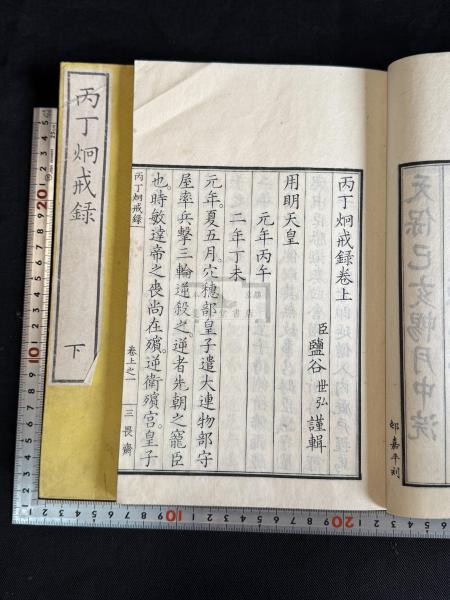 丙丁炯戒録卷上
臣鹽谷世弘謹輯
用明天皇
元年丙午
二年丁未
元年。夏五月。穴穗部皇子遣大連物部守
屋率兵擊三輪逆殺之。逆者先朝之寵臣
也。時敏達帝之喪尚在殯。逆衛殯宮。皇子
丙丁炯戒録
卷上之一
三畏齋
丙丁炯戒録
下
天保己亥暢月中浣
邨嘉平刻